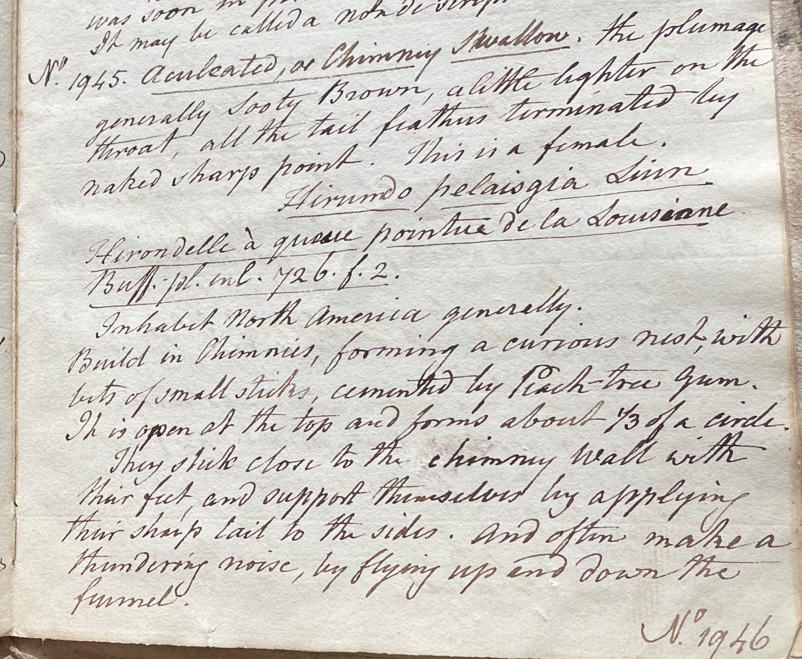 was soon in
It may be called a non de script
No. 1945. Aculeated, or Chimney Swallow. the plumage
generally Sooty Brown, a little lighter on the
throat, all the tail feathers terminated by
naked sharp point. This is a female.
Hirundo pelaisgia Linn
Hirondelle à queue pointue de la Louisiane
Buff. pl. enl. 726. f. 2.
Inhabit North America generally.
Build in Chimnies, forming a curious nest, with
bits of small sticks, cemented by Peach-tree Gum.
It is open at the top and forms about 1/3 of a circle.
They stick close to the chimney Wall with
their feet, and support themselves by applying
their sharp tail to the sides. And often make a
thundering noise, by flying up and down the
funnel.
No. 1946